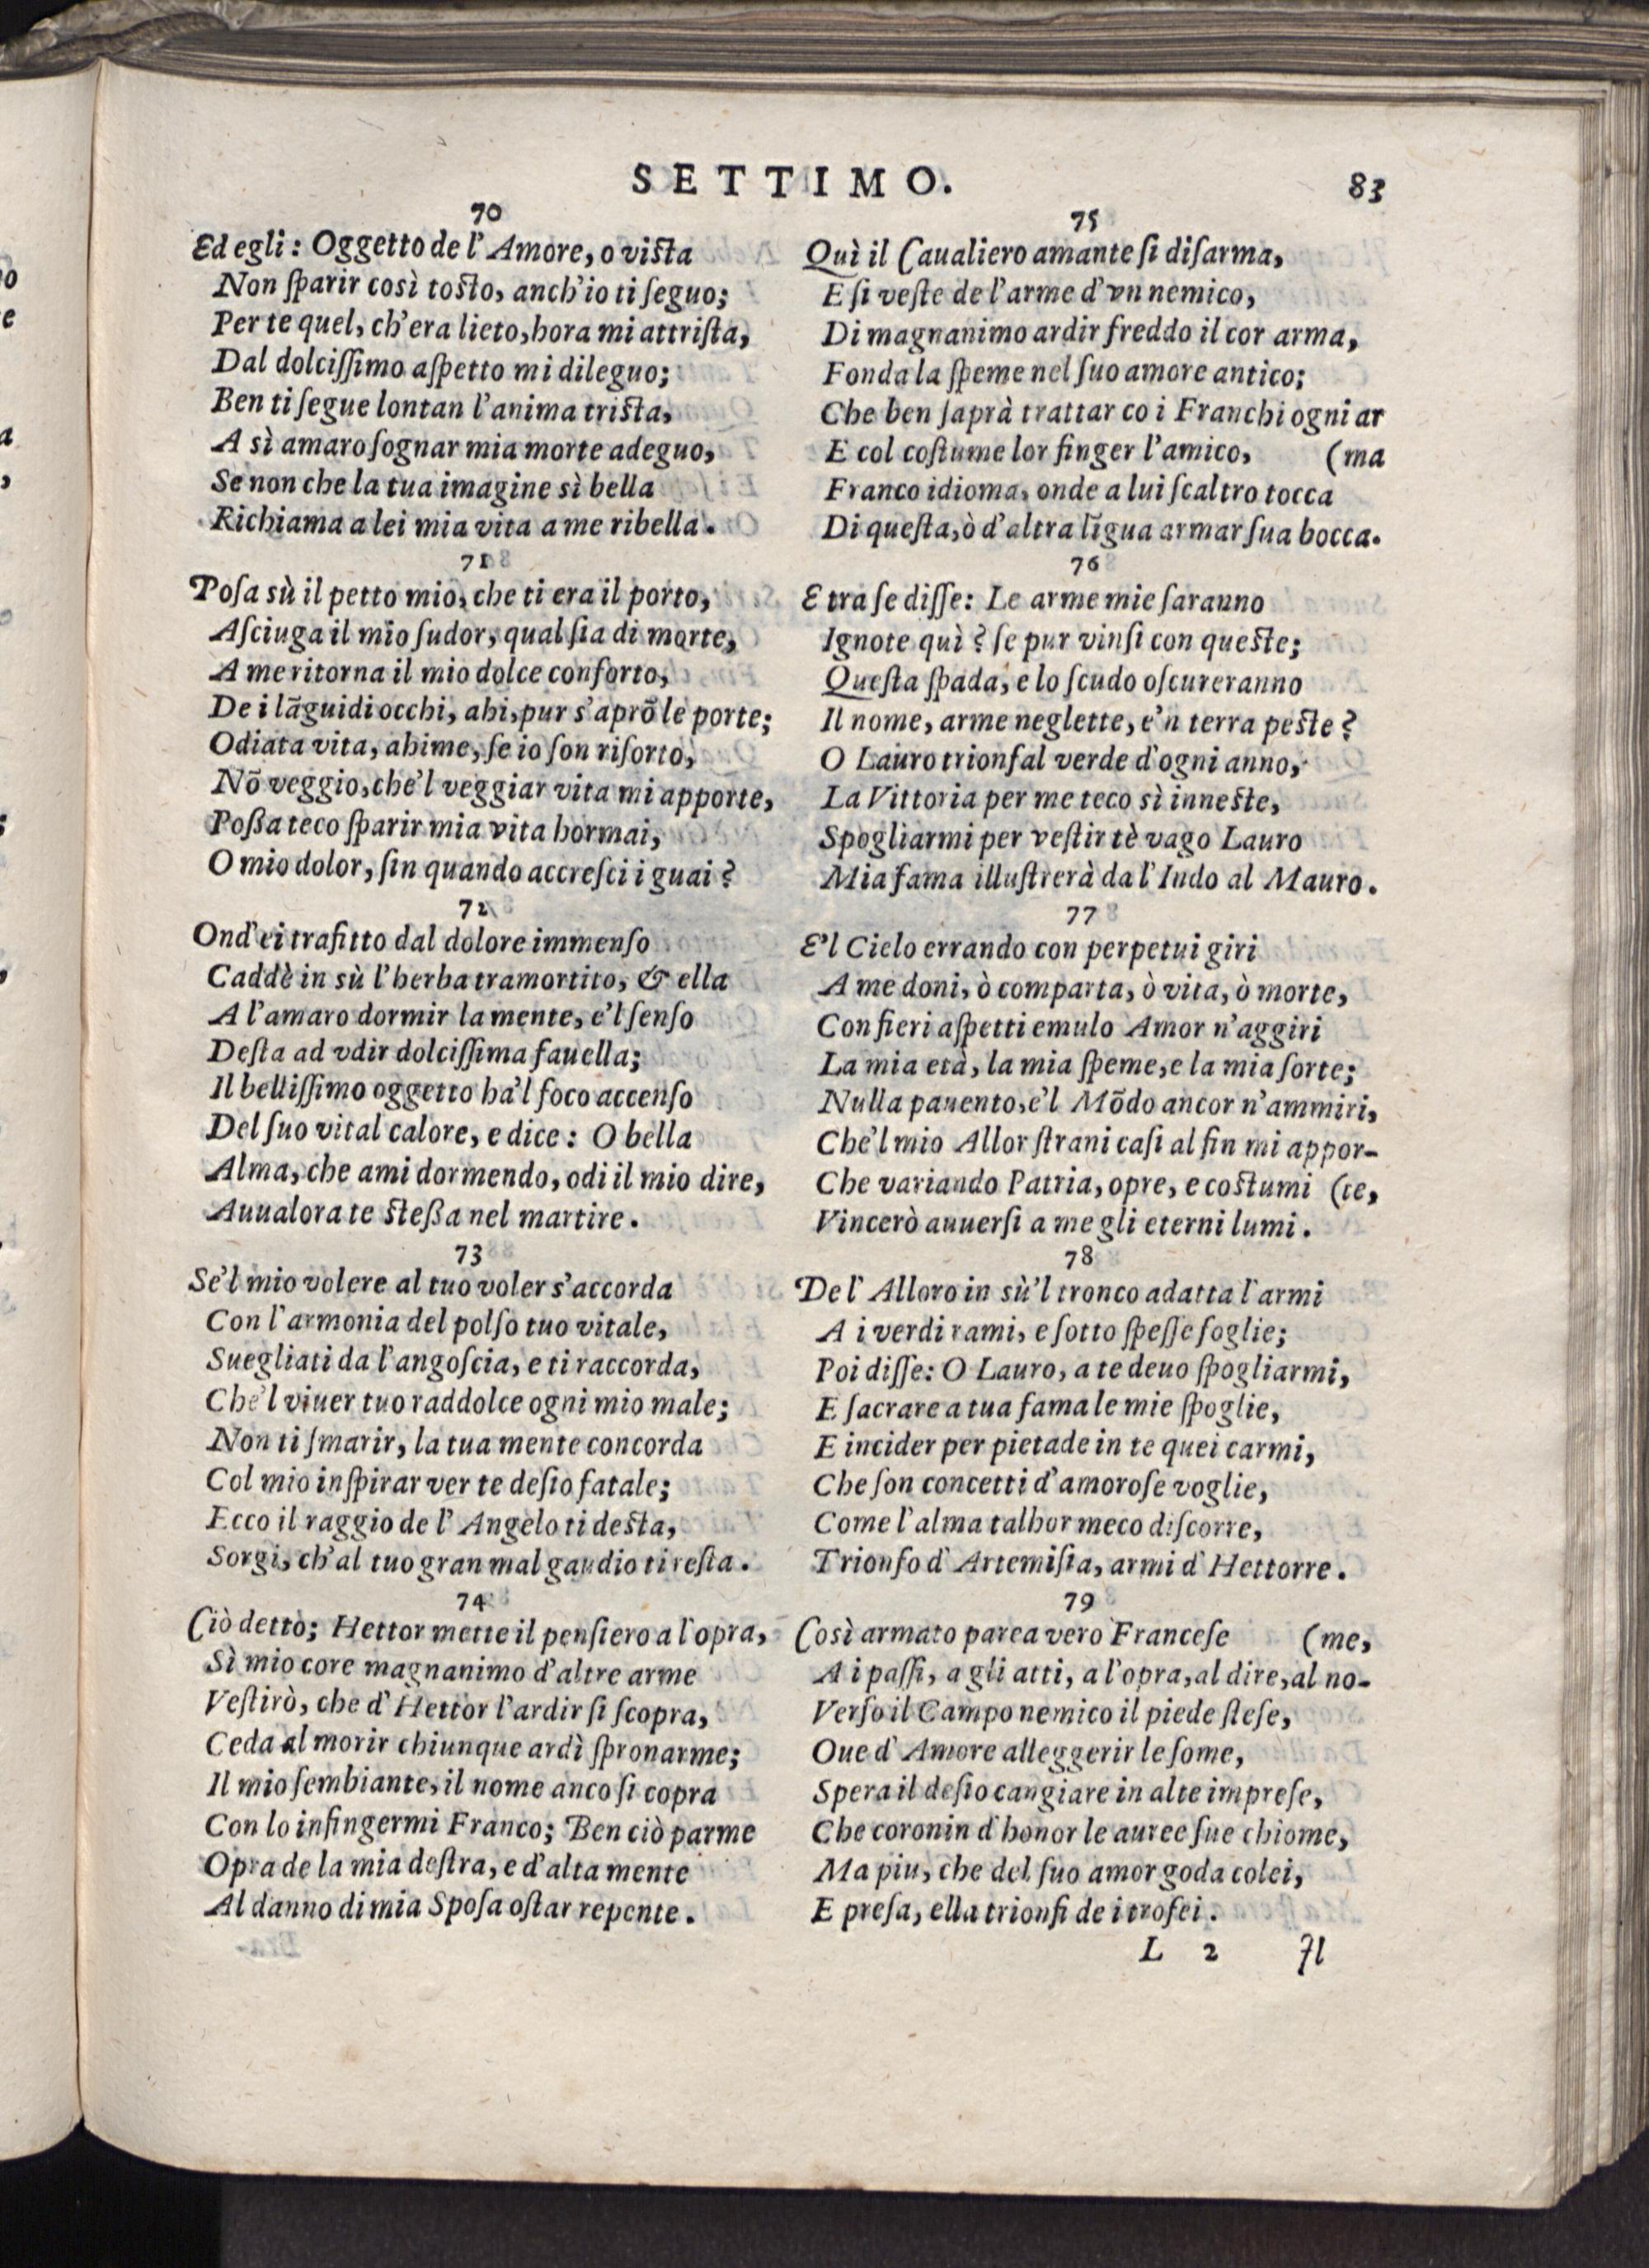 SETTIMO. 83
70
Ed egli: Oggetto de l'Amore, o vista
Non sparir così tosto, anch'io ti seguo;
Per te quel, ch'era lieto, hora mi attrista,
Dal dolcissimo aspetto mi dileguo;
Ben ti segue lontan l'anima trista,
A sì amaro sognar mia morte adeguo,
Se non che la tua imagine sì bella
Richiama a lei mia vita a me ribella.
71
Posa sù il petto mio, che ti era il porto,
Asciuga il mio sudor, qual sia di morte,
A me ritorna il mio dolce conforto,
De i lãguidi occhi, ahi, pur s'aprõ le porte;
Odiata vita, ahime, se io son risorto,
Nõ veggio, che'l veggiar vita mi apporte,
Poßa teco sparir mia vita hormai,
O mio dolor, sin quando accresci i guai?
72
Ond'ei trafitto dal dolore immenso
Caddè in sù l'herba tramortito, & ella
A l'amaro dormir la mente, e'l senso
Desta ad vdir dolcissima fauella;
Il bellissimo oggetto ha'l foco accenso
Del suo vital calore, e dice: O bella
Alma, che ami dormendo, odi il mio dire,
Auualora te steßa nel martire.
73
Se'l mio volere al tuo voler s'accorda
Con l'armonia del polso tuo vitale,
Suegliati da l'angoscia, e ti raccorda,
Che'l viuer tuo raddolce ogni mio male;
Non ti smarir, la tua mente concorda
Col mio inspirar ver te desio fatale;
Ecco il raggio de l'Angelo ti desta,
Sorgi, ch'al tuo gran mal gaudio ti resta.
74
Ciò detto; Hettor mette il pensiero a l'opra,
Sì mio core magnanimo d'altre arme
Vestirò, che d'Hettor l'ardir si scopra,
Ceda al morir chiunque ardì spronarme;
Il mio sembiante, il nome anco si copra
Con lo infingermi Franco; Ben ciò parme
Opra de la mia destra, e d'alta mente
Al danno di mia Sposa ostar repente.
75
Quì il Caualiero amante si disarma,
E si veste de l'arme d'vn nemico,
Di magnanimo ardir freddo il cor arma,
Fonda la speme nel suo amore antico;
Che ben saprà trattar co i Franchi ogni ar
E col costume lor finger l'amico, (ma
Franco idioma, onde a lui scaltro tocca
Di questa, ò d'altra lĩgua armar sua bocca.
76
E tra se disse: Le arme mie saranno
Ignote quì? se pur vinsi con queste;
Questa spada, e lo scudo oscureranno
Il nome, arme neglette, e'n terra peste?
O Lauro trionfal verde d'ogni anno,
La Vittoria per me teco sì inneste,
Spogliarmi per vestir tè vago Lauro
Mia fama illustrerà da l'Indo al Mauro.
77
E'l Cielo errando con perpetui giri
A me doni, ò comparta, ò vita, ò morte,
Con fieri aspetti emulo Amor n'aggiri
La mia età, la mia speme, e la mia sorte;
Nulla pauento, e'l Mõdo ancor n'ammiri,
Che'l mio Allor strani casi al fin mi appor-
Che variando Patria, opre, e costumi (te,
Vincerò auuersi a me gli eterni lumi.
78
De l'Alloro in sù'l tronco adatta l'armi
A i verdi rami, e sotto spesse foglie;
Poi disse: O Lauro, a te deuo spogliarmi,
E sacrare a tua fama le mie spoglie,
E incider per pietade in te quei carmi,
Che son concetti d'amorose voglie,
Come l'alma talhor meco discorre,
Trionfo d'Artemisia, armi d'Hettorre.
79
Così armato parea vero Francese (me,
A i passi, a gli atti, a l'opra, al dire, al no-
Verso il Campo nemico il piede stese,
Oue d'Amore alleggerir le some,
Spera il desio cangiare in alte imprese,
Che coronin d'honor le auree sue chiome,
Ma piu, che del suo amor goda colei,
E presa, ella trionfi de i trofei.
L 2 Il